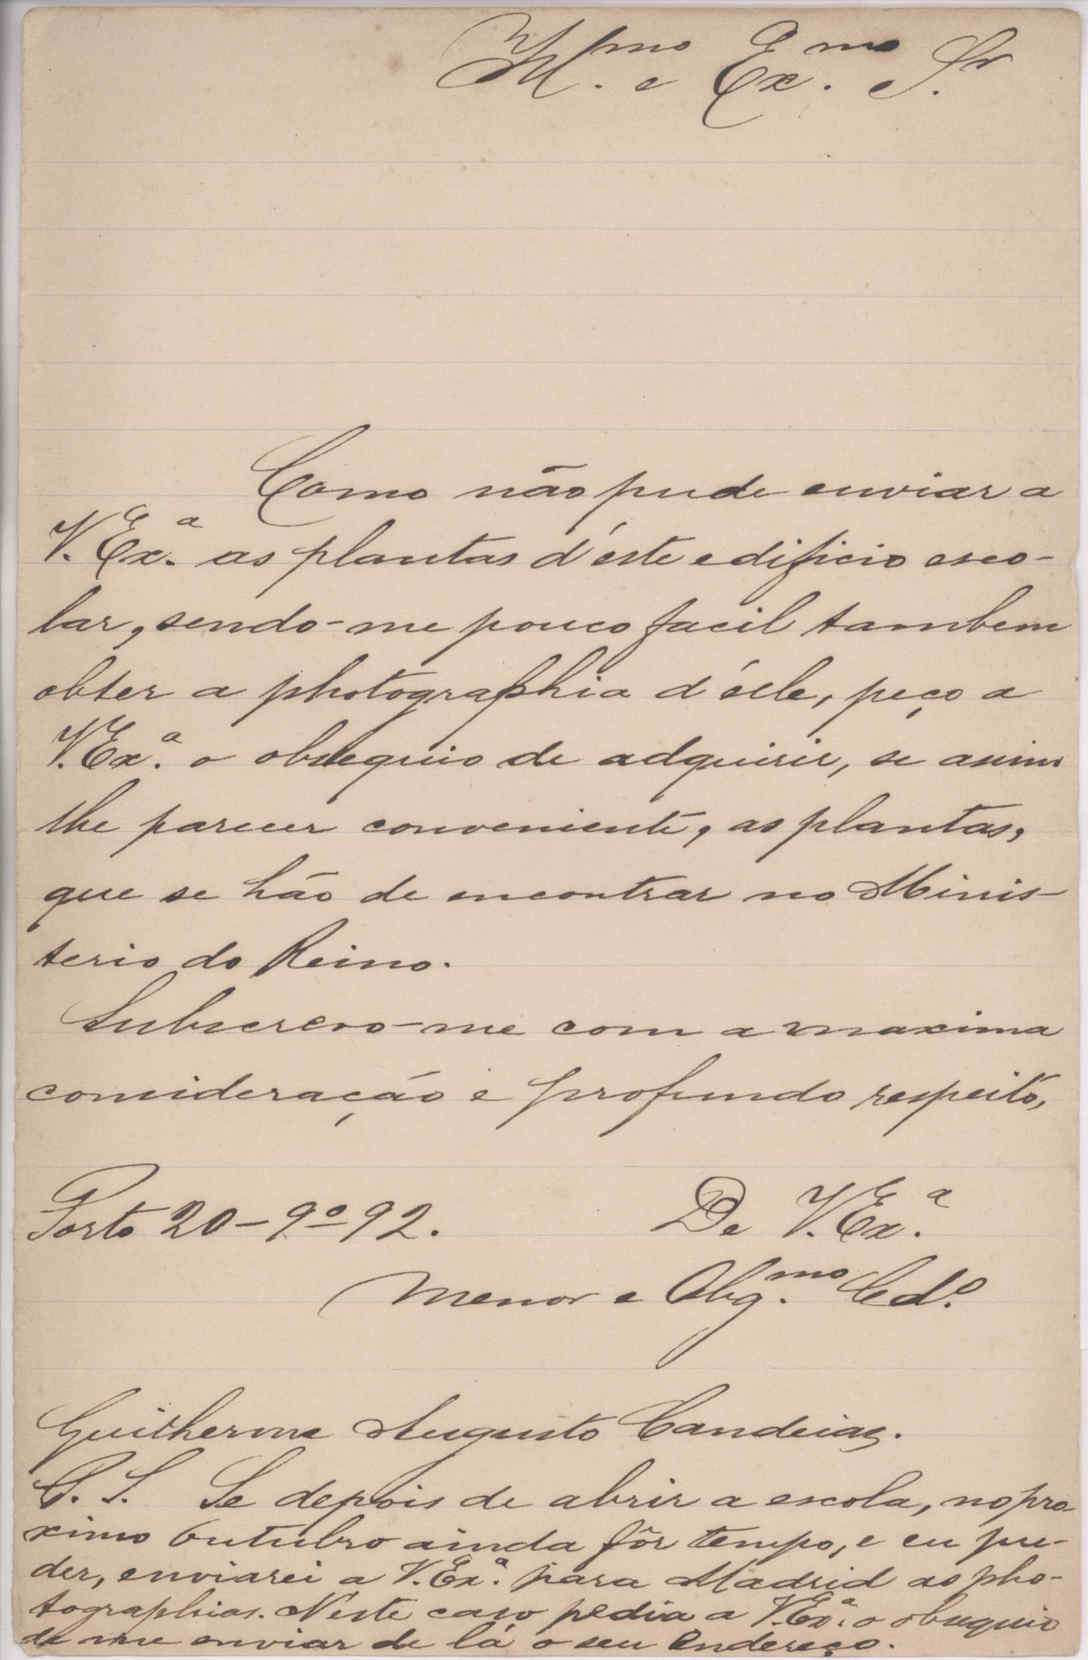 Ill.mo e Ex.mo Sr.
Como não pude enviar a
V. Ex.a as plantas d'éste edificio esco-
lar, sendo-me pouco facil tambem
obter a photographia d'éle, peço a
V. Ex.a o obsequio de adquirir, se assim
lhe parecer conveniente, as plantas,
que se hão de encontrar no Minis-
terio do Reino.
Subscrevo-me com a maxima
consideração e profundo respeito,
Porto 20-9º-92. De V. Ex.a
Menor e Obg.mo Cdº.
Guilherme Augusto Candeias.
P. S. Se depois de abrir a escola, no pro
ximo Outubro ainda fôr tempo, e eu pu-
der, enviarei a V. Ex.a para Madrid as pho-
tographias. N'éste caso pedia a V. Ex.a o obsequio
de me enviar de lá o seu endereço.